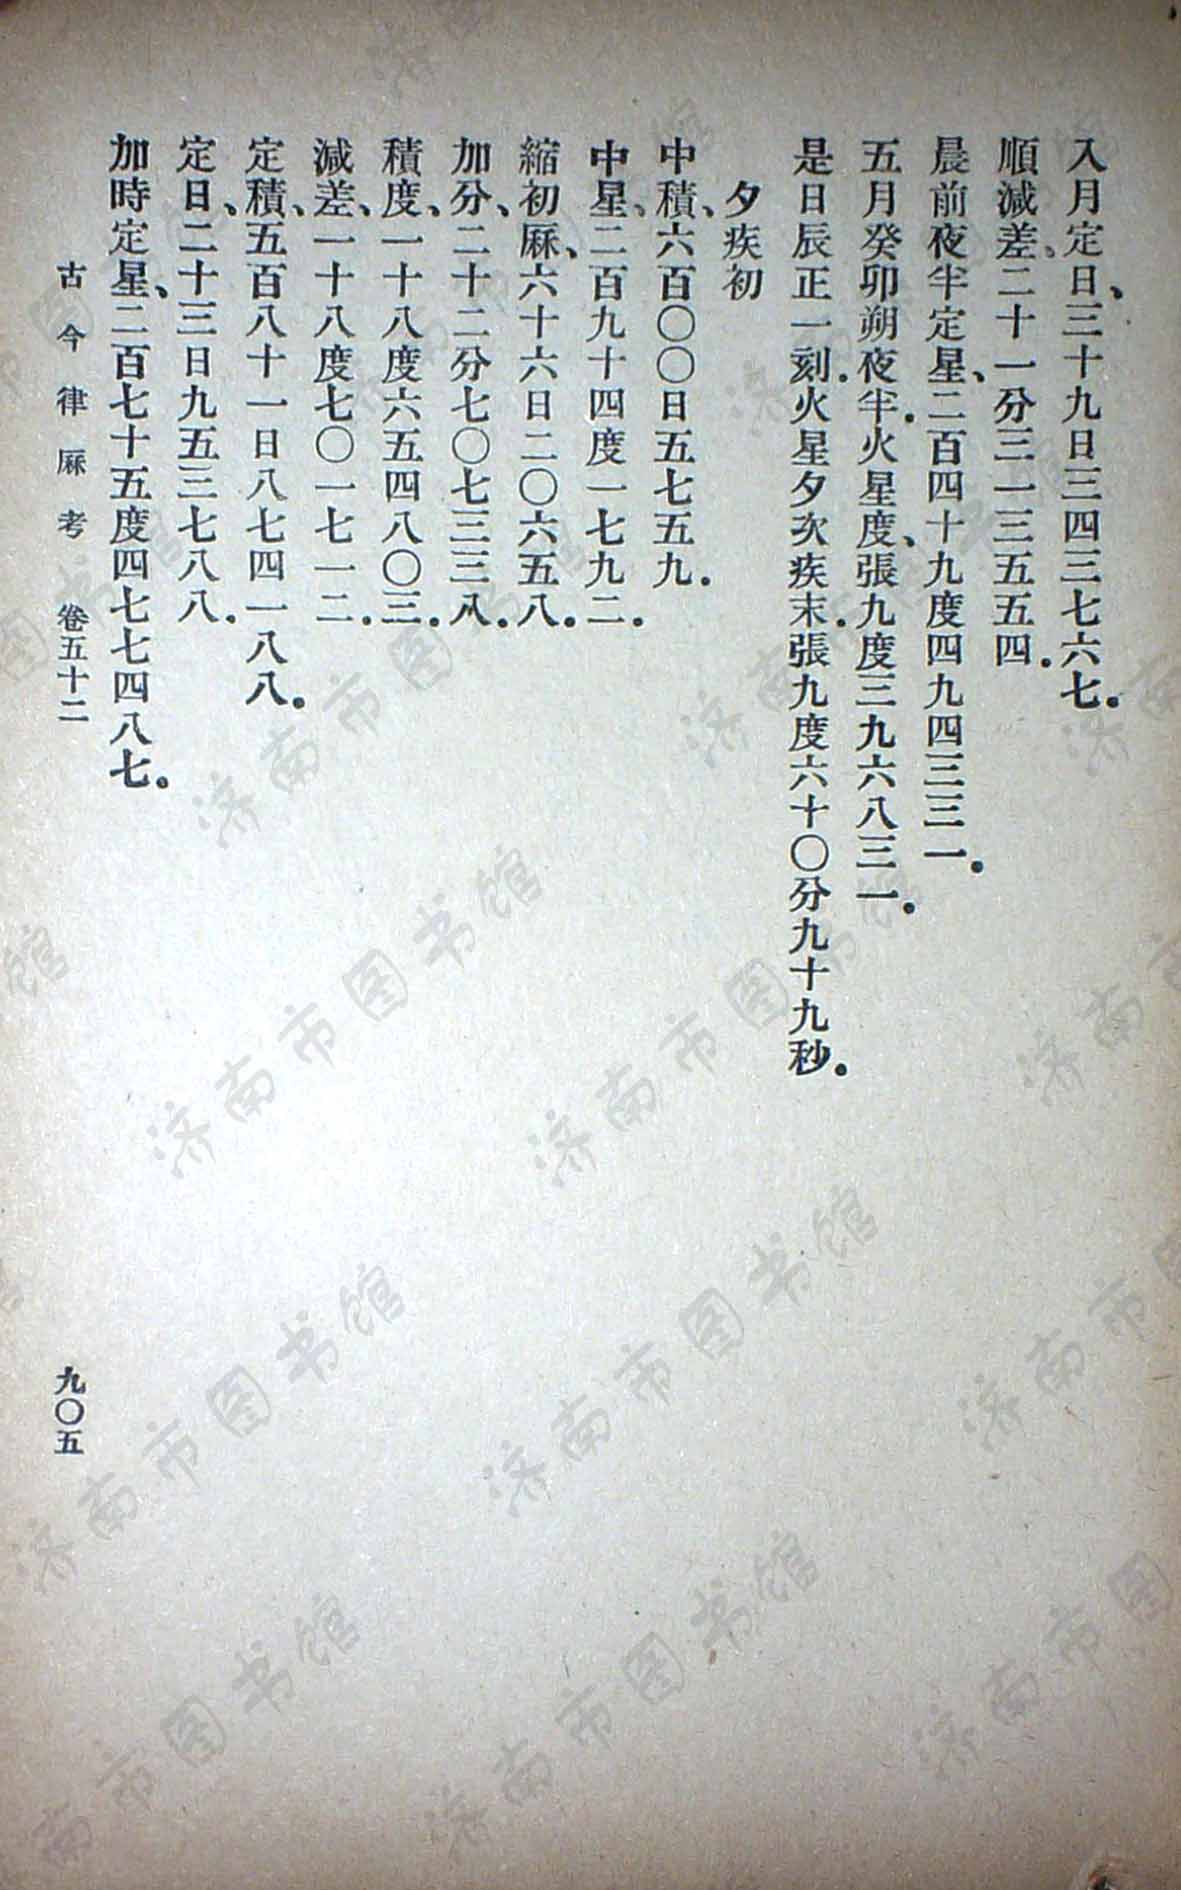 入月定日、三十九日三四三七六七。
順減差、二十一分三一三五五四。
晨前夜半定星、二百四十九度四九四三三一。
五月癸卯朔夜半。火星度、張九度三九六八三一。
是日辰正一刻。火星夕次疾末。張九度六十〇分九十九秒。
夕疾初
中積、六百〇〇日五七五九。
中星、二百九十四度一七九二。
縮初厤、六十六日二〇六五八。
加分、二十二分七〇七三三八。
積度、一十八度六五四八〇三。
減差、一十八度七〇一七一二。
定積、五百八十一日八七四一八八。
定日、二十三日九五三七八八。
加時定星、二百七十五度四七七四八七。
古今律厤考 卷五十二 九〇五
济南市图书馆